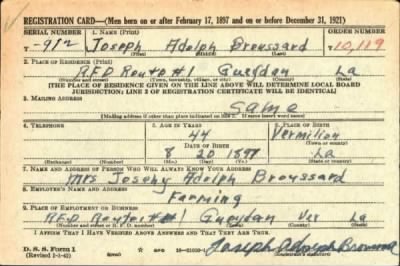 REGISTRATION CARD—(Men born on or after February 17, 1897 and on or before December 31, 1921)
SERIAL NUMBER 1. NAME (Print) ORDER NUMBER
T-912 Joseph Adolph Broussard T10,119
2. PLACE OF RESIDENCE (Print)
R.F.D Route #1 Gueydan La
(Number and street) (Town, township, village, or city) (County) (State)
[THE PLACE OF RESIDENCE GIVEN ON THE LINE ABOVE WILL DETERMINE LOCAL BOARD
JURISDICTION; LINE 2 OF REGISTRATION CERTIFICATE WILL BE IDENTICAL]
3. MAILING ADDRESS
Same
[Mailing address if other than place indicated on line 2. If same insert word same]
4. TELEPHONE 5. AGE IN YEARS 6. PLACE OF BIRTH
44 Vermilion
DATE OF BIRTH (Town or county)
8 20 1897 La
(Exchange) (Number) (Mo.) (Day) (Yr.) (State or country)
7. NAME AND ADDRESS OF PERSON WHO WILL ALWAYS KNOW YOUR ADDRESS
Mrs Joseph Adolph Broussard
8. EMPLOYER'S NAME AND ADDRESS
Farming
9. PLACE OF EMPLOYMENT OR BUSINESS
R.F.D Route #1 Gueydan Ver La
(Number and street or R. F. D. number) (Town) (County) (State)
I AFFIRM THAT I HAVE VERIFIED ABOVE ANSWERS AND THAT THEY ARE TRUE.
D. S. S. Form 1 Joseph Adolph Broussard
(Revised 1-1-42) (over)